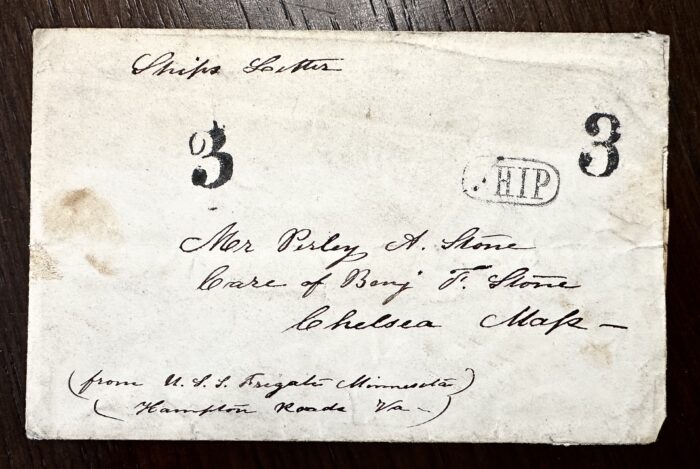 Ships Letter
3 3
SHIP
Mr Perley A. Stone
Care of Benj F. Stone
Chelsea Mass –
(from U.S.S. Frigate Minnesota)
(Hampton Roads Va –)